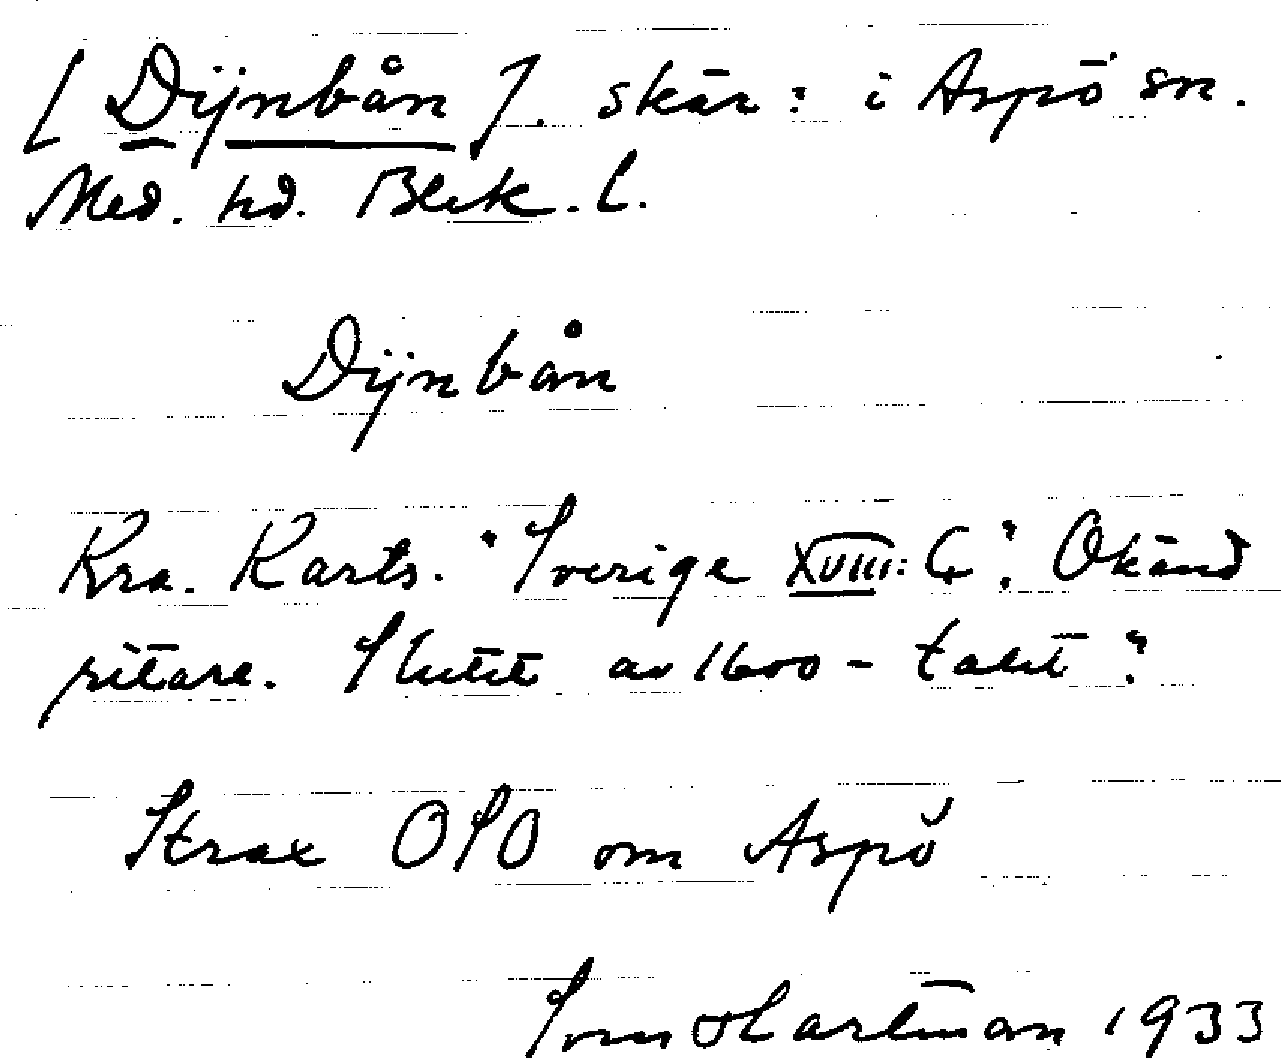 [Dijnbån]. skär: i Aspö sn.
Med. hd. Blek. l.
Dijnbån
Kra. Karts. "Sverige XVIII: C". Okänd
ritare. Slutet av 1600-talet?
Strax OSO om Aspö
Sven Hartman 1933